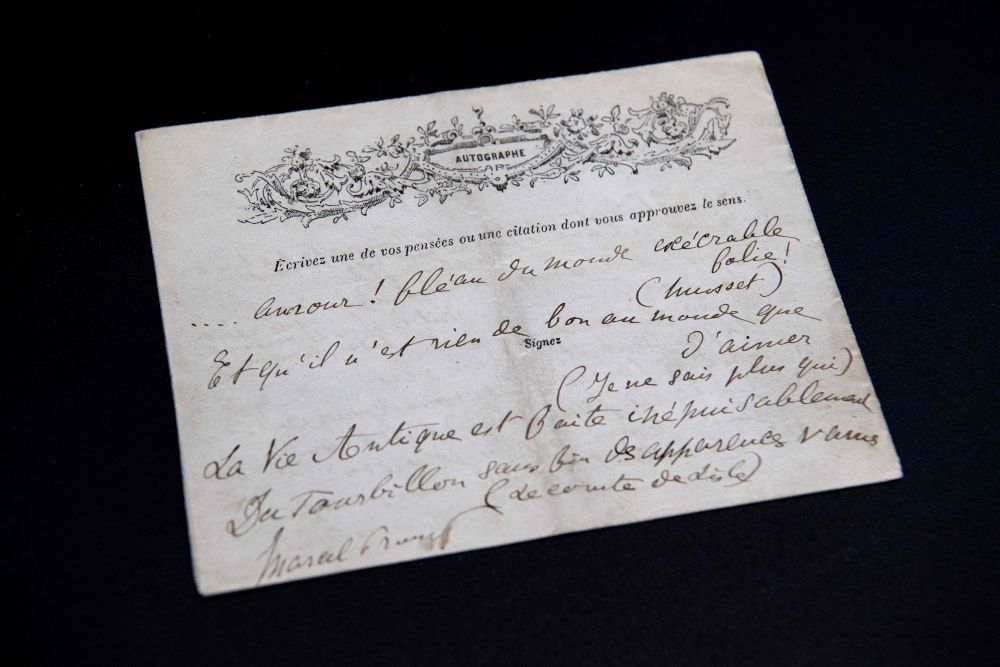 AUTOGRAPHE
Écrivez une de vos pensées ou une citation dont vous approuvez le sens.
.... amour ! fléau du monde exécrable
folie !
(Musset)
Et qu'il n'est rien de bon au monde que
Signez
d'aimer
(Je ne sais plus qui)
La Vie Antique est faite inépuisablement
Du Tourbillon sans fin des apparences vaines
(Leconte de Lisle)
Marcel Proust